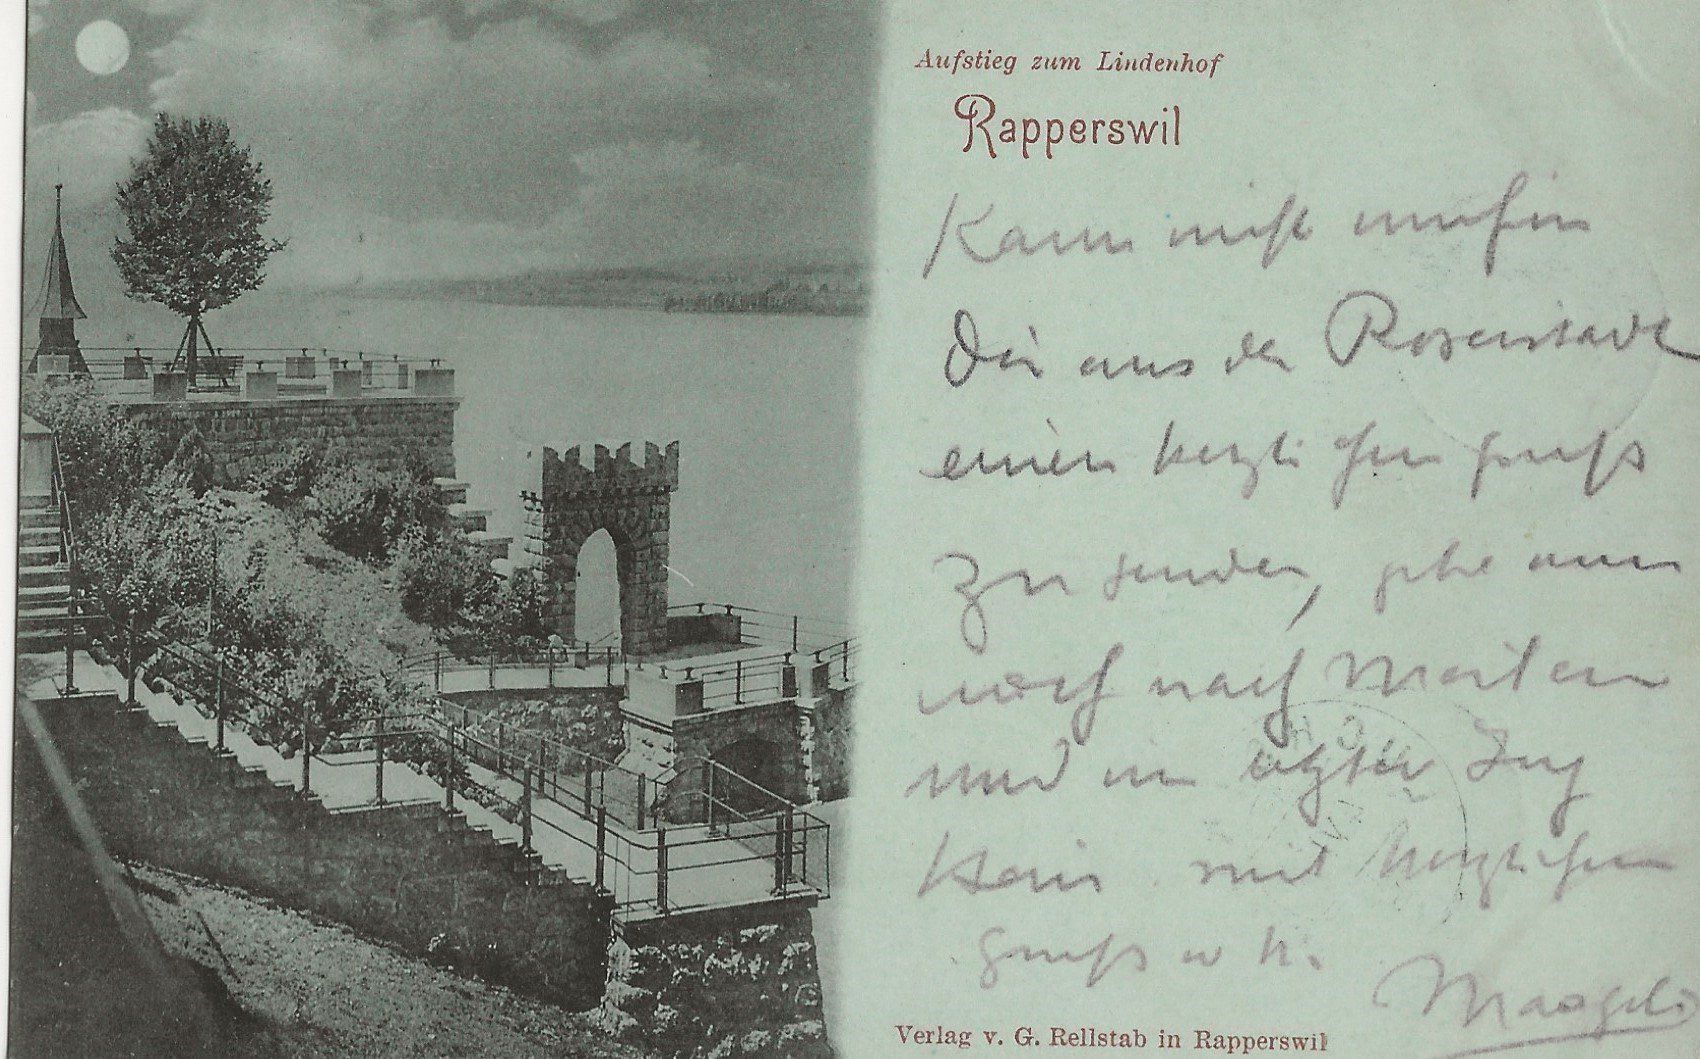 Aufstieg zum Lindenhof
Rapperswil
Kann nicht umhin
Dir aus der Rosenstadt
einen herzlichen Gruss
zu senden, gehe nun
noch nach
und im letzter Zug
Heim mit herzlichem
Gruss
Verlag v. G. Rellstab in Rapperswil